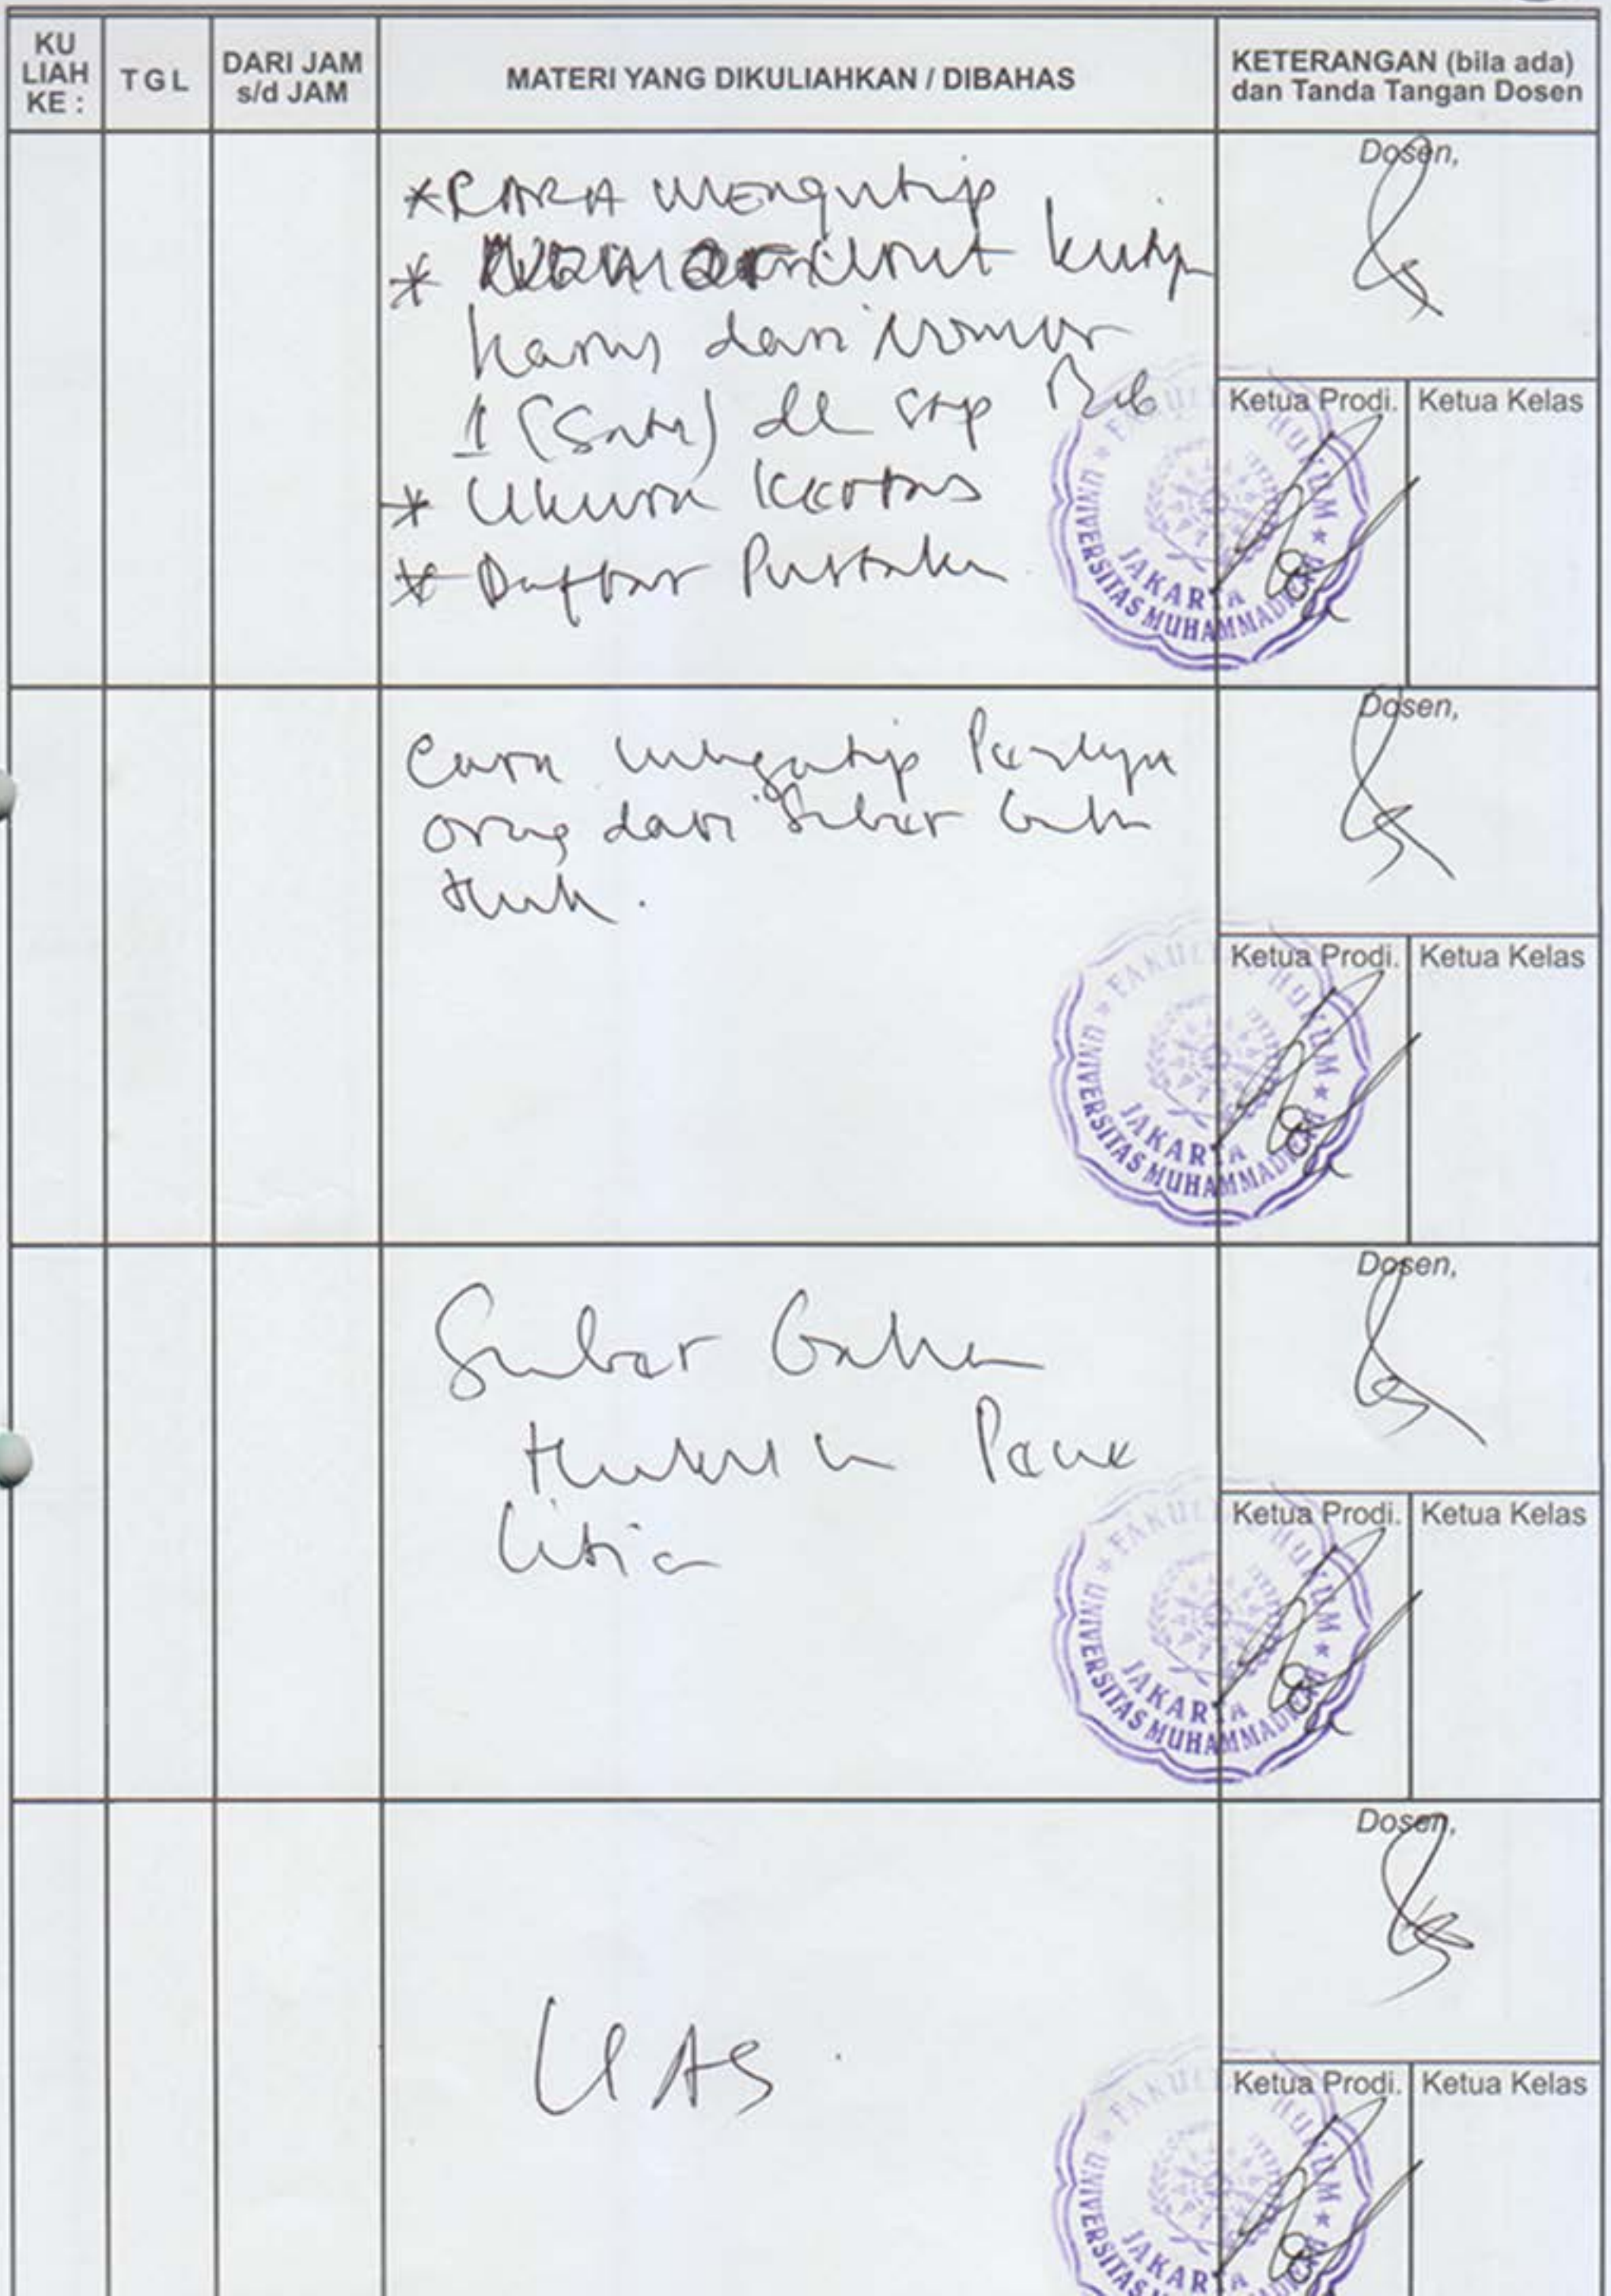 KU
LIAH
KE :
TGL
DARI JAM
s/d JAM
MATERI YANG DIKULIAHKAN / DIBAHAS
KETERANGAN (bila ada)
dan Tanda Tangan Dosen
*CARA mengutip
*
harus dari Nomor
1 (Satu) dl stp Bab
* Ukuran Kertas
* Daftar Pustaka
Dosen,
Ketua Prodi.
Ketua Kelas
FAKULTAS HUKUM
UNIVERSITAS MUHAMMADIYAH
JAKARTA
Cara mengutip
orang dari Sumber
Huk.
Dosen,
Ketua Prodi.
Ketua Kelas
FAKULTAS HUKUM
UNIVERSITAS MUHAMMADIYAH
JAKARTA
Sumber Bahan
Hukum
Dosen,
Ketua Prodi.
Ketua Kelas
FAKULTAS HUKUM
UNIVERSITAS MUHAMMADIYAH
JAKARTA
UAS.
Dosen,
Ketua Prodi.
Ketua Kelas
JAKARTA